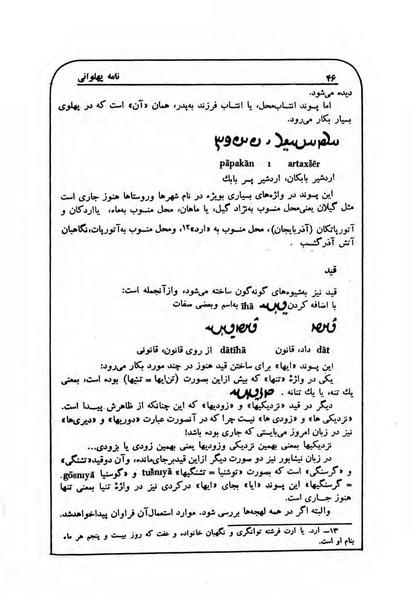 ۴۶ نامه پهلوانی
دیده می‌شود.
اما پسوند انتساب‌محل، یا انتساب فرزند به‌پدر، همان «آن» است که در پهلوی
بسیار بکار می‌رود.
pāpakān ı artaxšēr
اردشیر بابکان، اردشیر پسر بابك
این پسوند در واژه‌های بسیاری بویژه در نام شهرها وروستاها هنوز جاری است
مثل گیلان یعنی‌محل منسوب به‌نژاد گیل، یا ماهان، محل منسوب به‌ماه، یااردکان و
آتورپاتکان (آذربایجان)، محل منسوب به «ارد»۱۳، ومحل منسوب به‌آتورپات، نگاهبان
آتش آذرگشسب .
قید
قید نیز به‌شیوه‌های گونه‌گون ساخته می‌شود، وازآنجمله است:
با اضافه کردن īhā به‌اسم وبعضی صفات
dāt داد، قانون dātīhā از روی قانون، قانونی
این پسوند «ایها» برای ساختن قید هنوز در چند مورد بکار می‌رود:
یکی در واژهٔ «تنها» که پیش ازاین بصورت (تن‌ایها = تنیها) بوده است، بمعنی
یك تنه، یا یك تنانه .
دیگر در قید «نزدیکیها» و «زودیها» که این چنانکه از ظاهرش پیدا ست.
«نزدیکی ها» و «زودی ها» نیست چرا که در آنصورت عبارت «دوریها» و «دیری‌ها»
نیز در زبان امروز می‌بایستی که جاری بوده باشد!
نزدیکیها بمعنی بهمین نزدیکی وزودیها یعنی بهمین زودی یا بزودی...
در زبان نیشابور نیز دو صورت دیگر ازاین قیدبرجای‌مانده، وآن دوقید«تشنگی»
و «گرسنگی» است که بصورت «توشنیا = تشنگیها» tušnıyā و «گوسنیا gösnıyā.
= گرسنگیها» این پسوند «ایا» بجای «ایها» درکردی نیز در واژهٔ تنیا بمعنی تنها
هنوز جاری است.
والبته اگر در همه لهجه‌ها بررسی شود. موارد استعمال‌آن فراوان پیداخواهدشد.
۱۳— ارد. یا ارت فرشته توانگری و نگهبان خانواده و عفت که روز بیست و پنجم هر ماه
بنام او است.